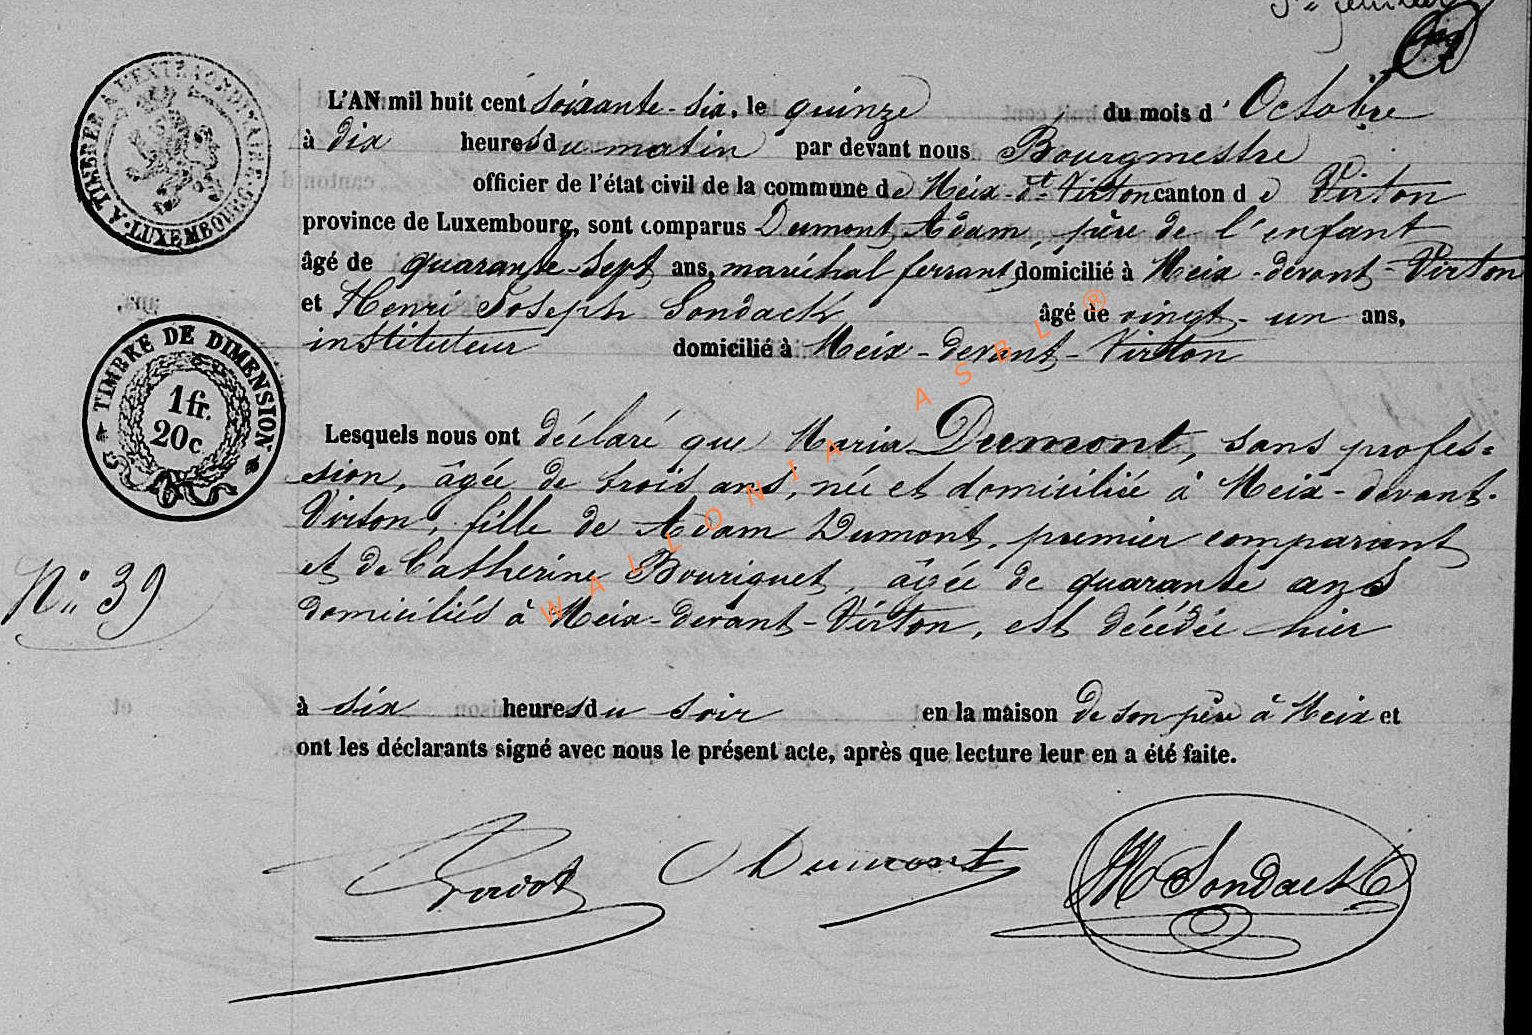 A TIMBRER A L'EXTRAORDINAIRE
LUXEMBOURG
L'AN mil huit cent soixante-six, le quinze du mois d'Octobre
à dix heures du matin par devant nous Bourgmestre
officier de l'état civil de la commune de Meix-dt-Virton canton de Virton
province de Luxembourg, sont comparus Dumont Adam, père de l'enfant
âgé de quarante-sept ans, maréchal ferrant domicilié à Meix-devant-Virton
et Henri Joseph Sondack âgé de vingt-un ans,
instituteur domicilié à Meix-devant-Virton
TIMBRE DE DIMENSION
1 fr.
20 c
Lesquels nous ont déclaré que Maria Dumont, sans profes=
sion, âgée de trois ans, née et domiciliée à Meix-devant-
Virton, fille de Adam Dumont, premier comparant
et de Cathérine Bouriquet, âgée de quarante ans
N° 39
domiciliés à Meix-devant-Virton, est décédée hier
à six heures du soir en la maison de son père à Meix et
ont les déclarants signé avec nous le présent acte, après que lecture leur en a été faite.
Dumont Sondack
WALLONIA ASBL ®